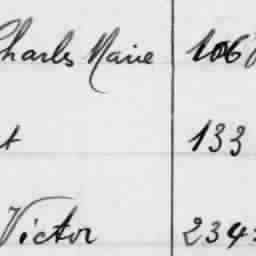 Charles Marie 106
t 133
Victor 234